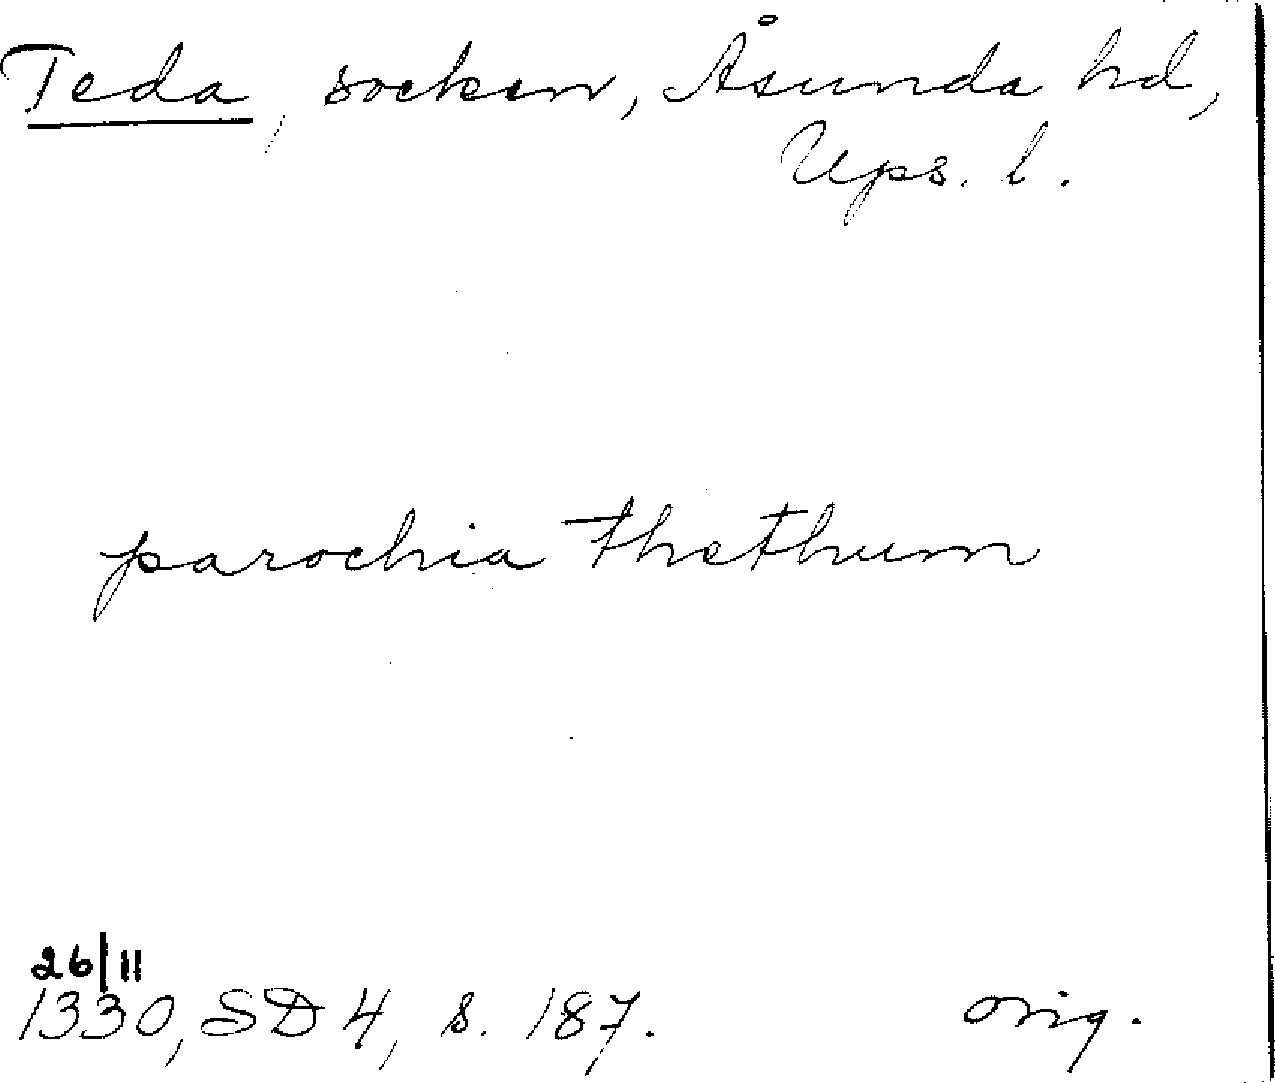 Teda, socken, Åsunda hd,
Ups. l.
parochia thethum
26/11
1330, SD 4, s. 187.
orig.